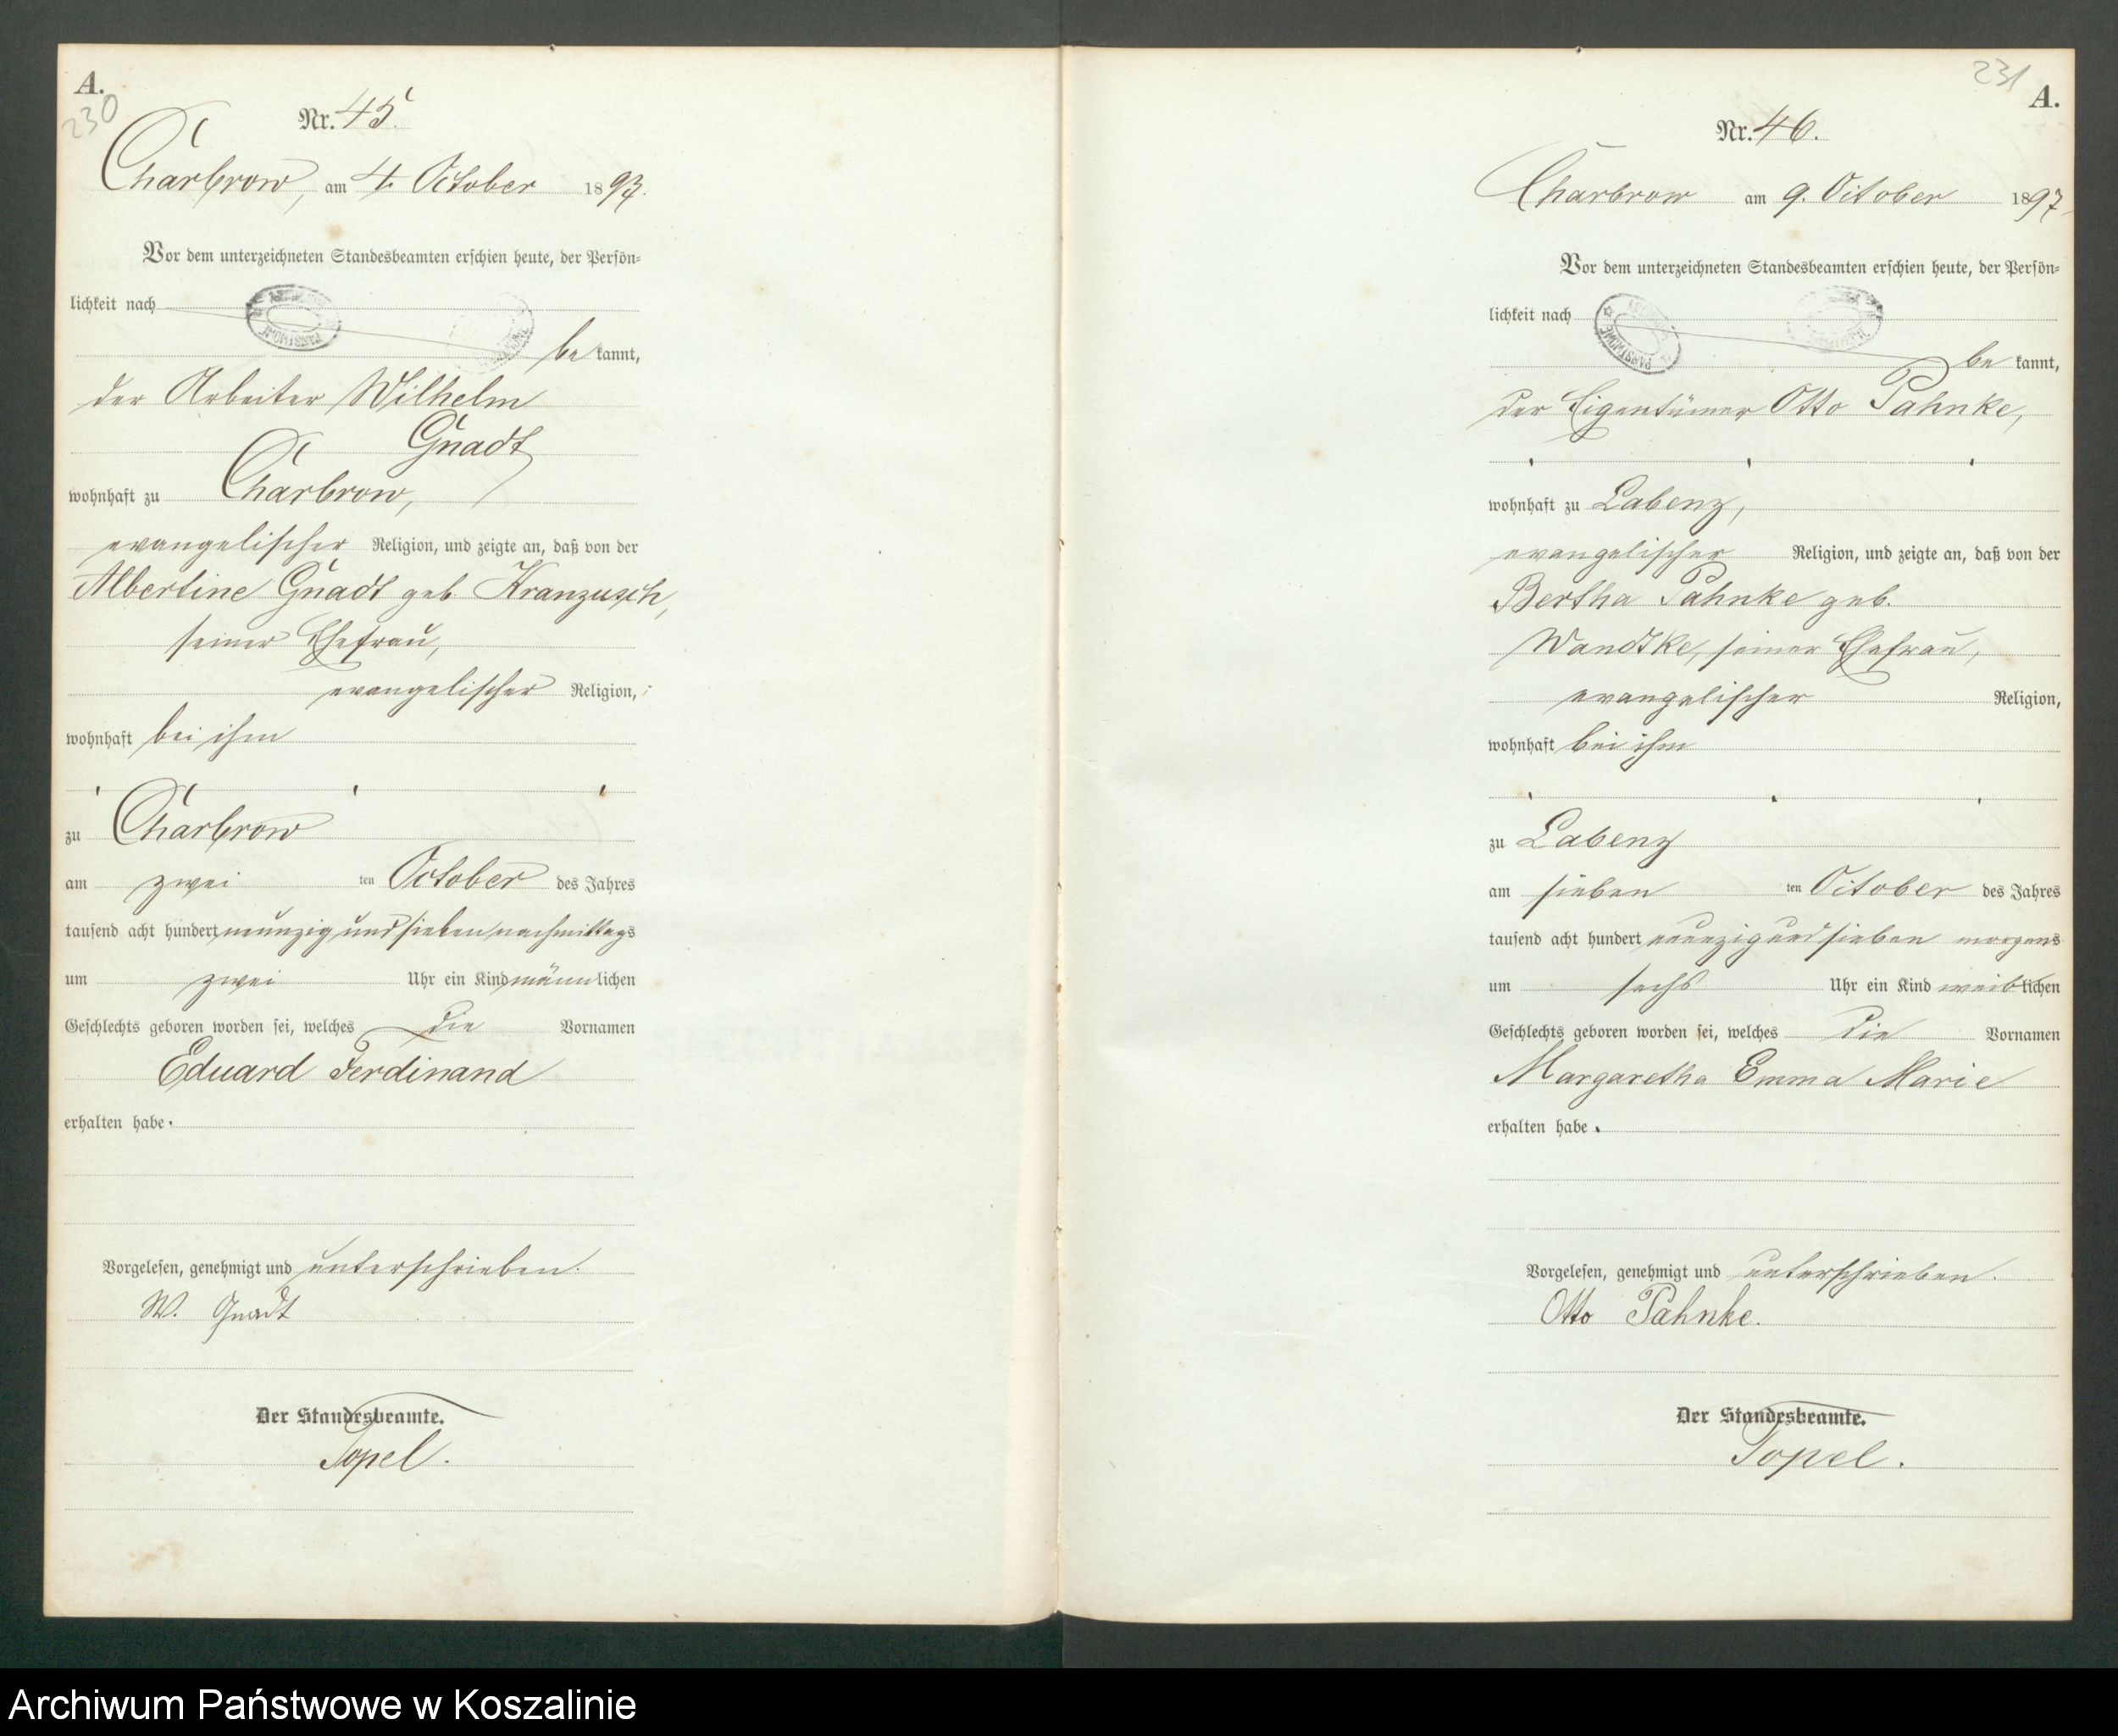 A.
230
Nr. 45.
Charbrow, am 4. October 1897.
Vor dem unterzeichneten Standesbeamten erschien heute, der Persön=
lichkeit nach
be kannt,
der Arbeiter Wilhelm
Gnadt
wohnhaft zu Charbrow,
evangelischer Religion, und zeigte an, daß von der
Albertine Gnadt geb. Kranzusch,
seiner Ehefrau,
evangelischer Religion,
wohnhaft bei ihm
zu Charbrow
am zwei ten October des Jahres
tausend acht hundert neunzig und sieben nachmittags
um zwei Uhr ein Kind männlichen
Geschlechts geboren worden sei, welches die Vornamen
Eduard Ferdinand
erhalten habe.
Vorgelesen, genehmigt und unterschrieben.
W. Gnadt
Der Standesbeamte.
Topel.
231
A.
Nr. 46.
Charbrow am 9. October 1897
Vor dem unterzeichneten Standesbeamten erschien heute, der Persön=
lichkeit nach
be kannt,
der Eigentümer Otto Pahnke,
wohnhaft zu Labenz,
evangelischer Religion, und zeigte an, daß von der
Bertha Pahnke geb.
Wandtke, seiner Ehefrau,
evangelischer Religion,
wohnhaft bei ihm
zu Labenz
am sieben ten October des Jahres
tausend acht hundert neunzig und sieben morgens
um sechs Uhr ein Kind weiblichen
Geschlechts geboren worden sei, welches die Vornamen
Margaretha Emma Marie
erhalten habe.
Vorgelesen, genehmigt und unterschrieben.
Otto Pahnke.
Der Standesbeamte.
Topel.
Archiwum Państwowe w Koszalinie